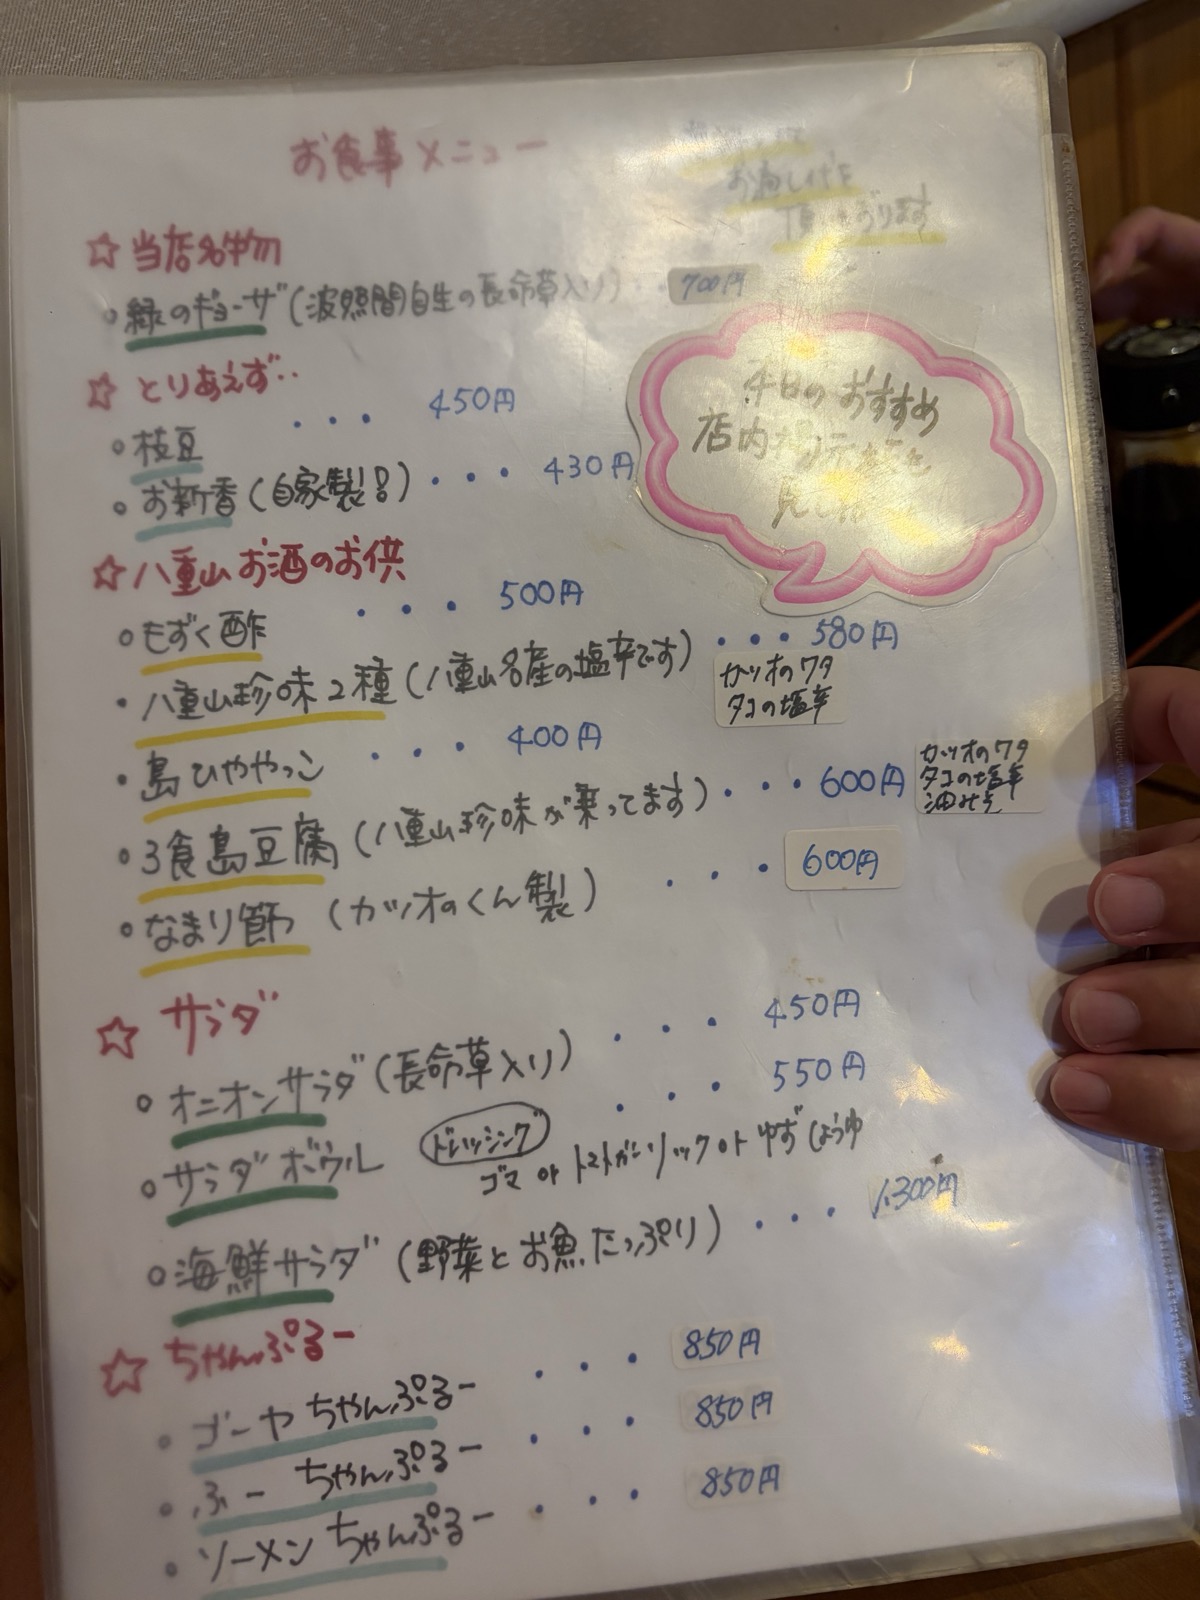 お食事メニュー
お通し代を
頂いております
☆当店名物
○緑のギョーザ(波照間自生の長命草入り)・・700円
☆とりあえず・・
○枝豆 ・・・ 450円
○お新香(自家製!!)・・・430円
本日のおすすめ
店内
☆八重山お酒のお供
○もずく酢 ・・・ 500円
・八重山珍味2種(八重山名産の塩辛です)・・・580円
カツオのワタ
タコの塩辛
・島ひややっこ ・・・ 400円
・3食島豆腐(八重山珍味が乗ってます)・・・600円
カツオのワタ
タコの塩辛
油みそ
・なまり節(カツオのくん製) ・・・ 600円
☆サラダ
○オニオンサラダ(長命草入り) ・・・ 450円
○サラダボウル ・・・ 550円
ドレッシング
ゴマ or トマトガーリック or ゆずしょうゆ
○海鮮サラダ(野菜とお魚たっぷり)・・・1.300円
☆ちゃんぷるー
○ゴーヤちゃんぷるー ・・・ 850円
○ふーちゃんぷるー ・・・ 850円
○ソーメンちゃんぷるー ・・・ 850円